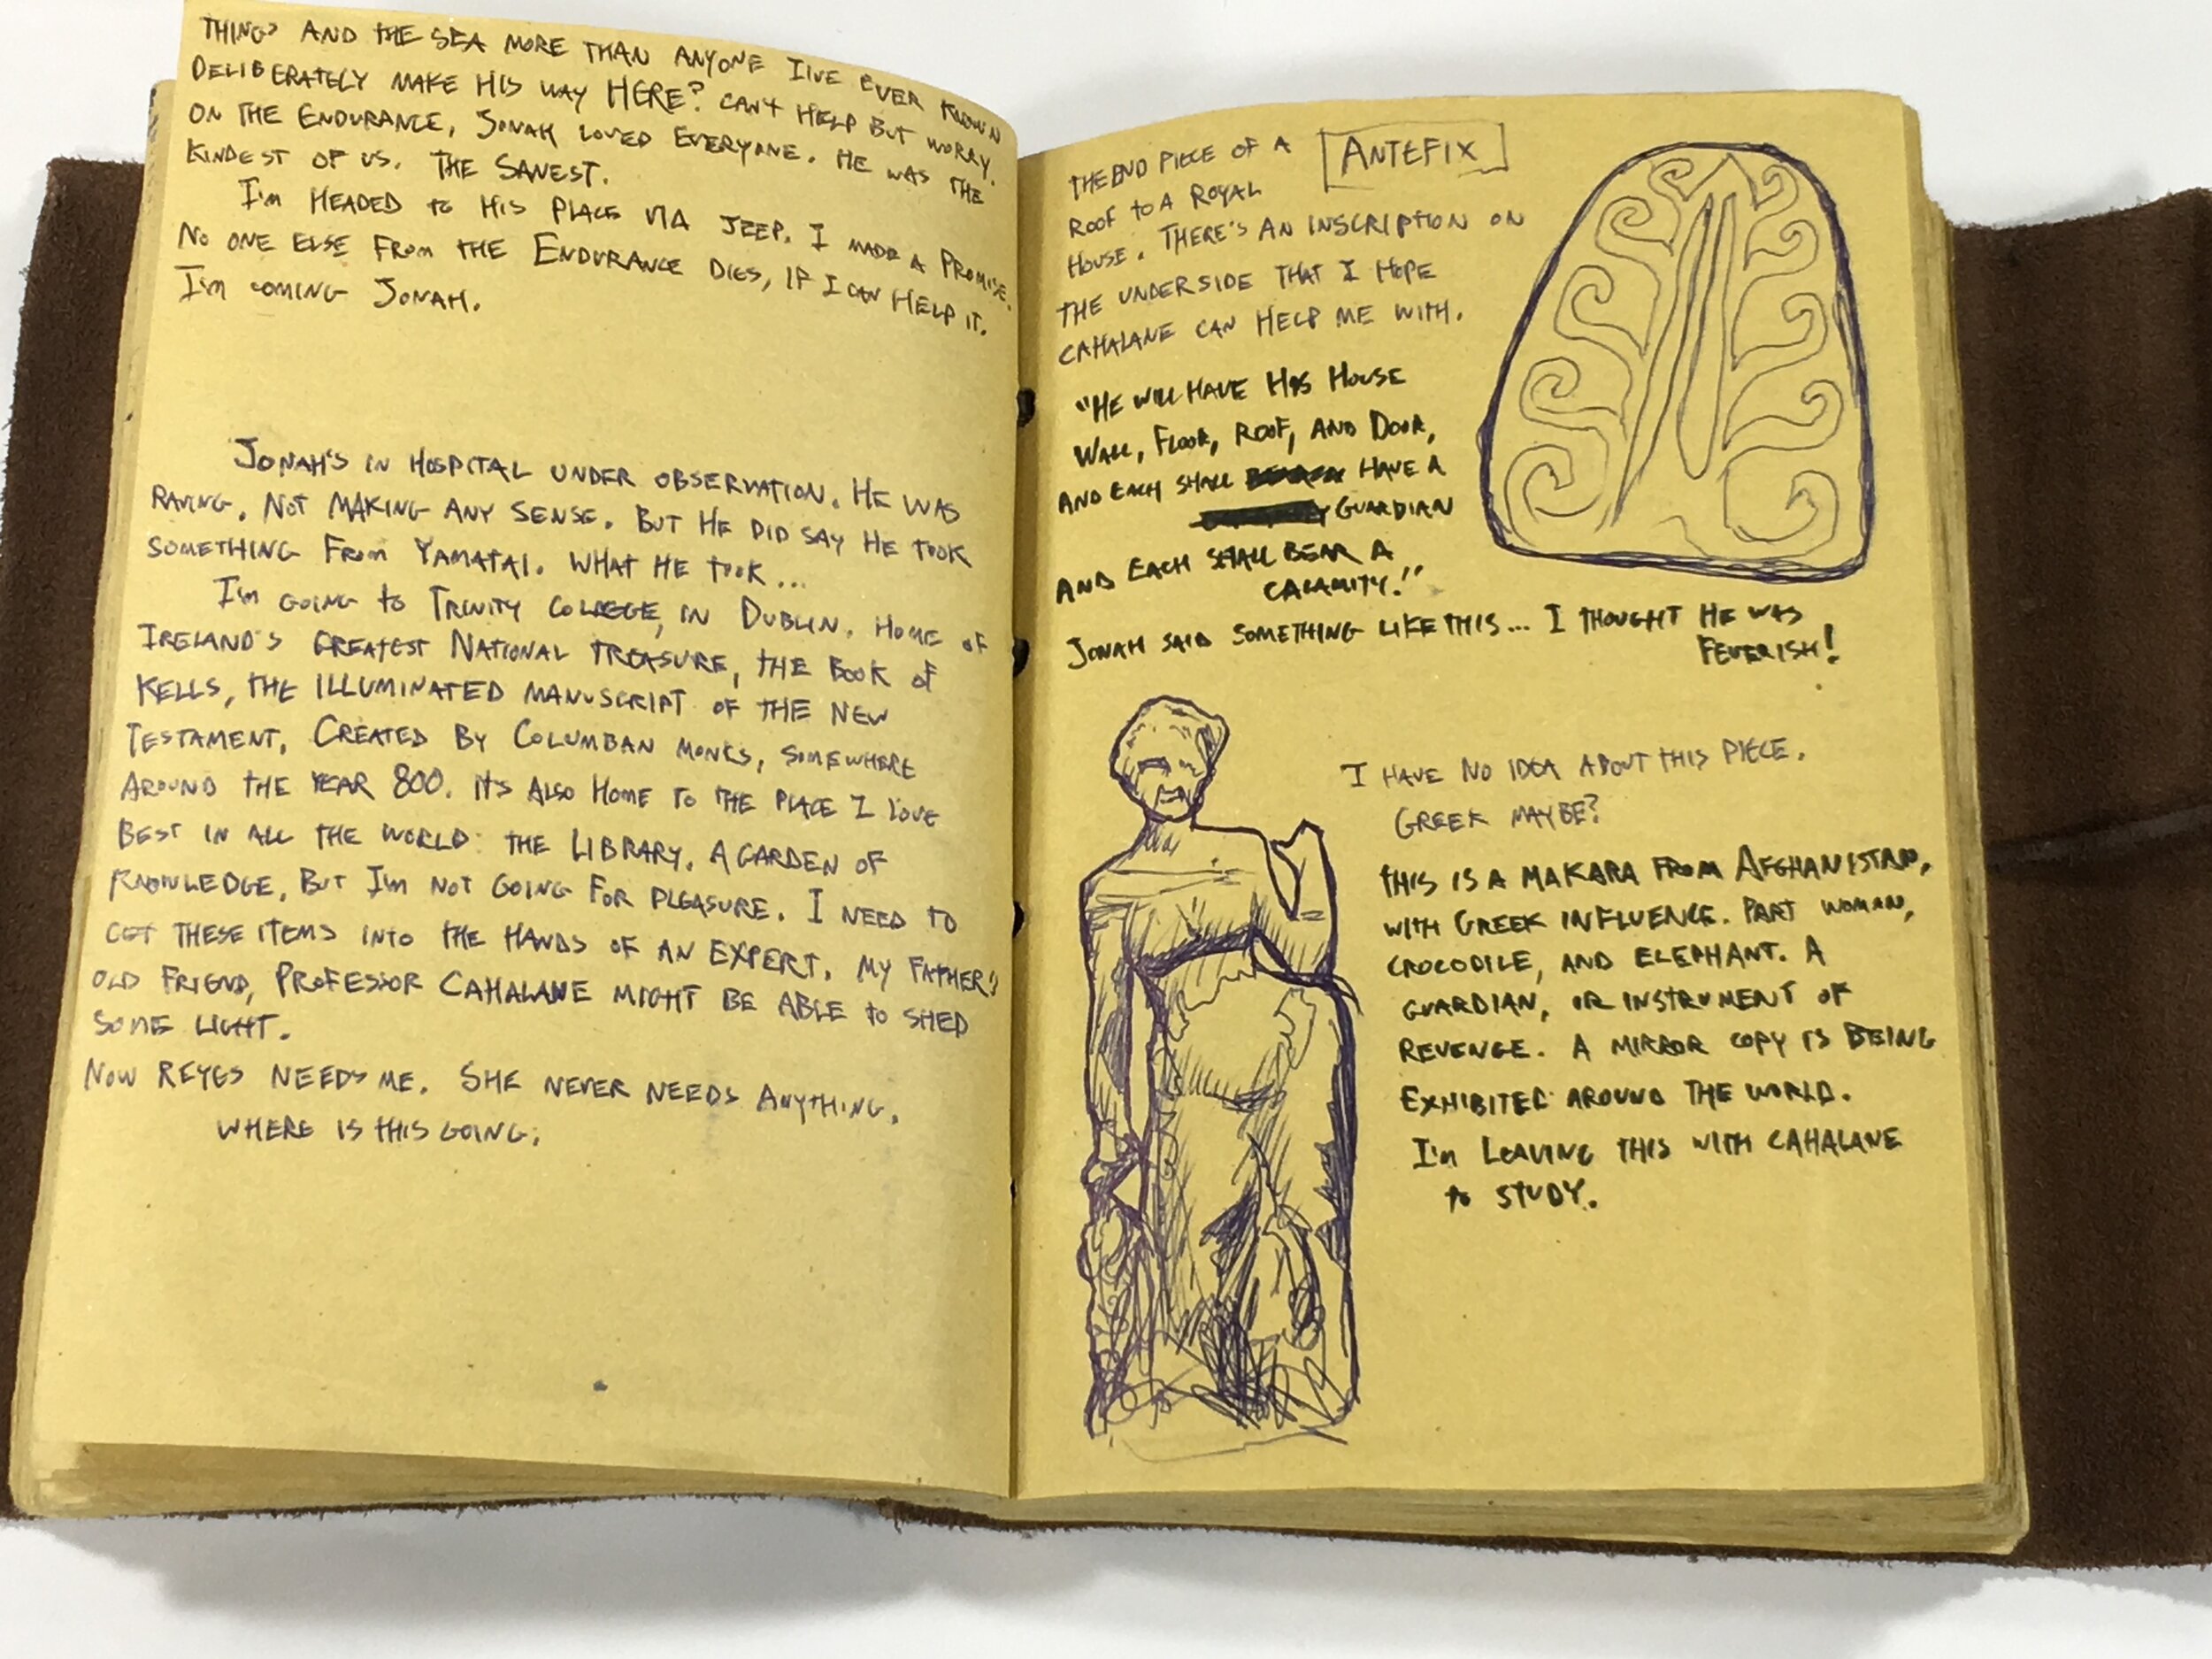 THINGS AND THE SEA MORE THAN ANYONE I'VE EVER KNOWN
DELIBERATELY MAKE HIS WAY HERE? CAN'T HELP BUT WORRY.
ON THE ENDURANCE, JONAH LOVED EVERYONE. HE WAS THE
KINDEST OF US. THE SANEST.
I'M HEADED TO HIS PLACE VIA JEEP. I MADE A PROMISE.
NO ONE ELSE FROM THE ENDURANCE DIES, IF I CAN HELP IT.
I'M COMING JONAH.
JONAH'S IN HOSPITAL UNDER OBSERVATION. HE WAS
RAVING. NOT MAKING ANY SENSE. BUT HE DID SAY HE TOOK
SOMETHING FROM YAMATAI. WHAT HE TOOK...
I'M GOING TO TRINITY COLLEGE, IN DUBLIN. HOME OF
IRELAND'S GREATEST NATIONAL TREASURE, THE BOOK OF
KELLS, THE ILLUMINATED MANUSCRIPT OF THE NEW
TESTAMENT, CREATED BY COLUMBAN MONKS, SOMEWHERE
AROUND THE YEAR 800. IT'S ALSO HOME TO THE PLACE I LOVE
BEST IN ALL THE WORLD: THE LIBRARY. A GARDEN OF
KNOWLEDGE, BUT I'M NOT GOING FOR PLEASURE. I NEED TO
GET THESE ITEMS INTO THE HANDS OF AN EXPERT. MY FATHER'S
OLD FRIEND, PROFESSOR CAHALANE MIGHT BE ABLE TO SHED
SOME LIGHT.
NOW REYES NEEDS ME. SHE NEVER NEEDS ANYTHING.
WHERE IS THIS GOING.
ANTEFIX
THE END PIECE OF A
ROOF TO A ROYAL
HOUSE. THERE'S AN INSCRIPTION ON
THE UNDERSIDE THAT I HOPE
CAHALANE CAN HELP ME WITH.
"HE WILL HAVE HIS HOUSE
WALL, FLOOR, ROOF, AND DOOR,
AND EACH SHALL HAVE A
GUARDIAN
AND EACH SHALL BEAR A
CALAMITY!"
JONAH SAID SOMETHING LIKE THIS... I THOUGHT HE WAS
FEVERISH!
I HAVE NO IDEA ABOUT THIS PIECE.
GREEK MAYBE?
THIS IS A MAKARA FROM AFGHANISTAN,
WITH GREEK INFLUENCE. PART WOMAN,
CROCODILE, AND ELEPHANT. A
GUARDIAN, OR INSTRUMENT OF
REVENGE. A MIRROR COPY IS BEING
EXHIBITED AROUND THE WORLD.
I'M LEAVING THIS WITH CAHALANE
TO STUDY.